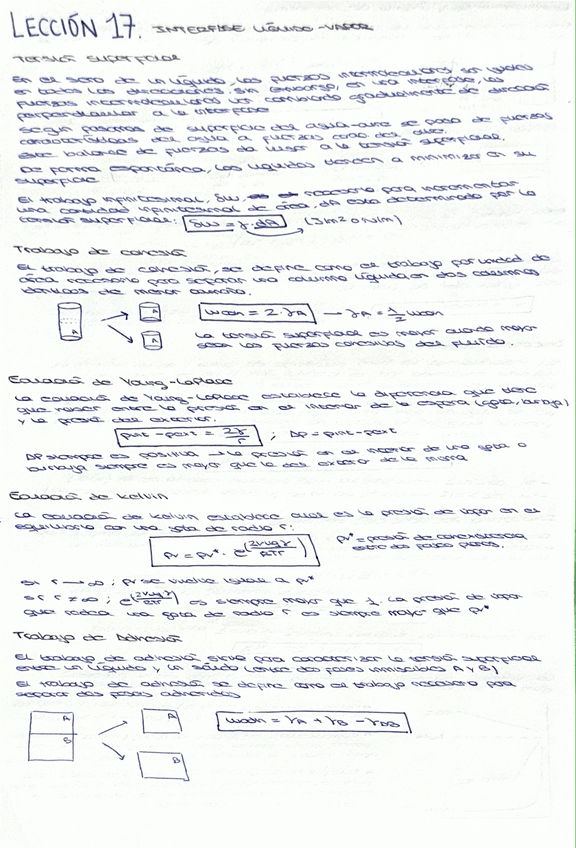 LECCIÓN 17. INTERFASE LÍQUIDO-VAPOR
Tensión superficial
En el seno de un líquido, las fuerzas intermoleculares son iguales
en todas las direcciones. Sin embargo, en una interfase, las
fuerzas intermoleculares van cambiando gradualmente de dirección
perpendicular a la interfase
Según pasamos de superficie del agua-aire se pasa de fuerzas
características del agua a fuerzas del aire.
Este balance de fuerzas da lugar a la tensión superficial.
De forma espontánea, los líquidos tienden a minimizar en su
superficie
El trabajo infinitesimal, δw necesario para incrementar
una cantidad infinitesimal de área, dA esta determinado por la
tensión superficial: δw = γ·dA (J/m² o N/m)
Trabajo de cohesión
El trabajo de cohesión, se define como el trabajo por unidad de
área necesario para separar una columna líquida en dos columnas
idénticas de menor tamaño.
A
A
wcoh = 2·γA → γA = 1/2 wcoh
La tensión superficial es mayor cuando mayor
sean las fuerzas cohesivas del fluido.
Ecuación de Young-Laplace
La ecuación de Young-Laplace establece la diferencia que tiene
que haber entre la presión en el interior de la esfera (gota, burbuja)
y la presión del exterior.
pint - pext = 2γ/r ; Δp = pint - pext
Δp siempre es positiva → la presión en el interior de una gota o
burbuja siempre es mayor que la del exterior de la misma
Ecuación de Kelvin
La ecuación de Kelvin establece cual es la presión de vapor en el
equilibrio con una gota de radio r:
pv = pv* · e^(2Vmγ/rRT) pv* = presión de coexistencia
entre dos fases planas.
Si r → ∞ ; pv se vuelve igual a pv*
Si r ≠ ∞ ; e^(2Vmγ/rRT) es siempre mayor que 1. La presión de vapor
que rodea una gota de radio r es siempre mayor que pv*
Trabajo de Adhesión
El trabajo de adhesión sirve para caracterizar la tensión superficial
entre un líquido y un sólido (entre dos fases inmiscibles A y B)
El trabajo de adhesión se define como el trabajo necesario para
separar dos fases adheridas
A
B
A
B
wadh = γA + γB - γAB